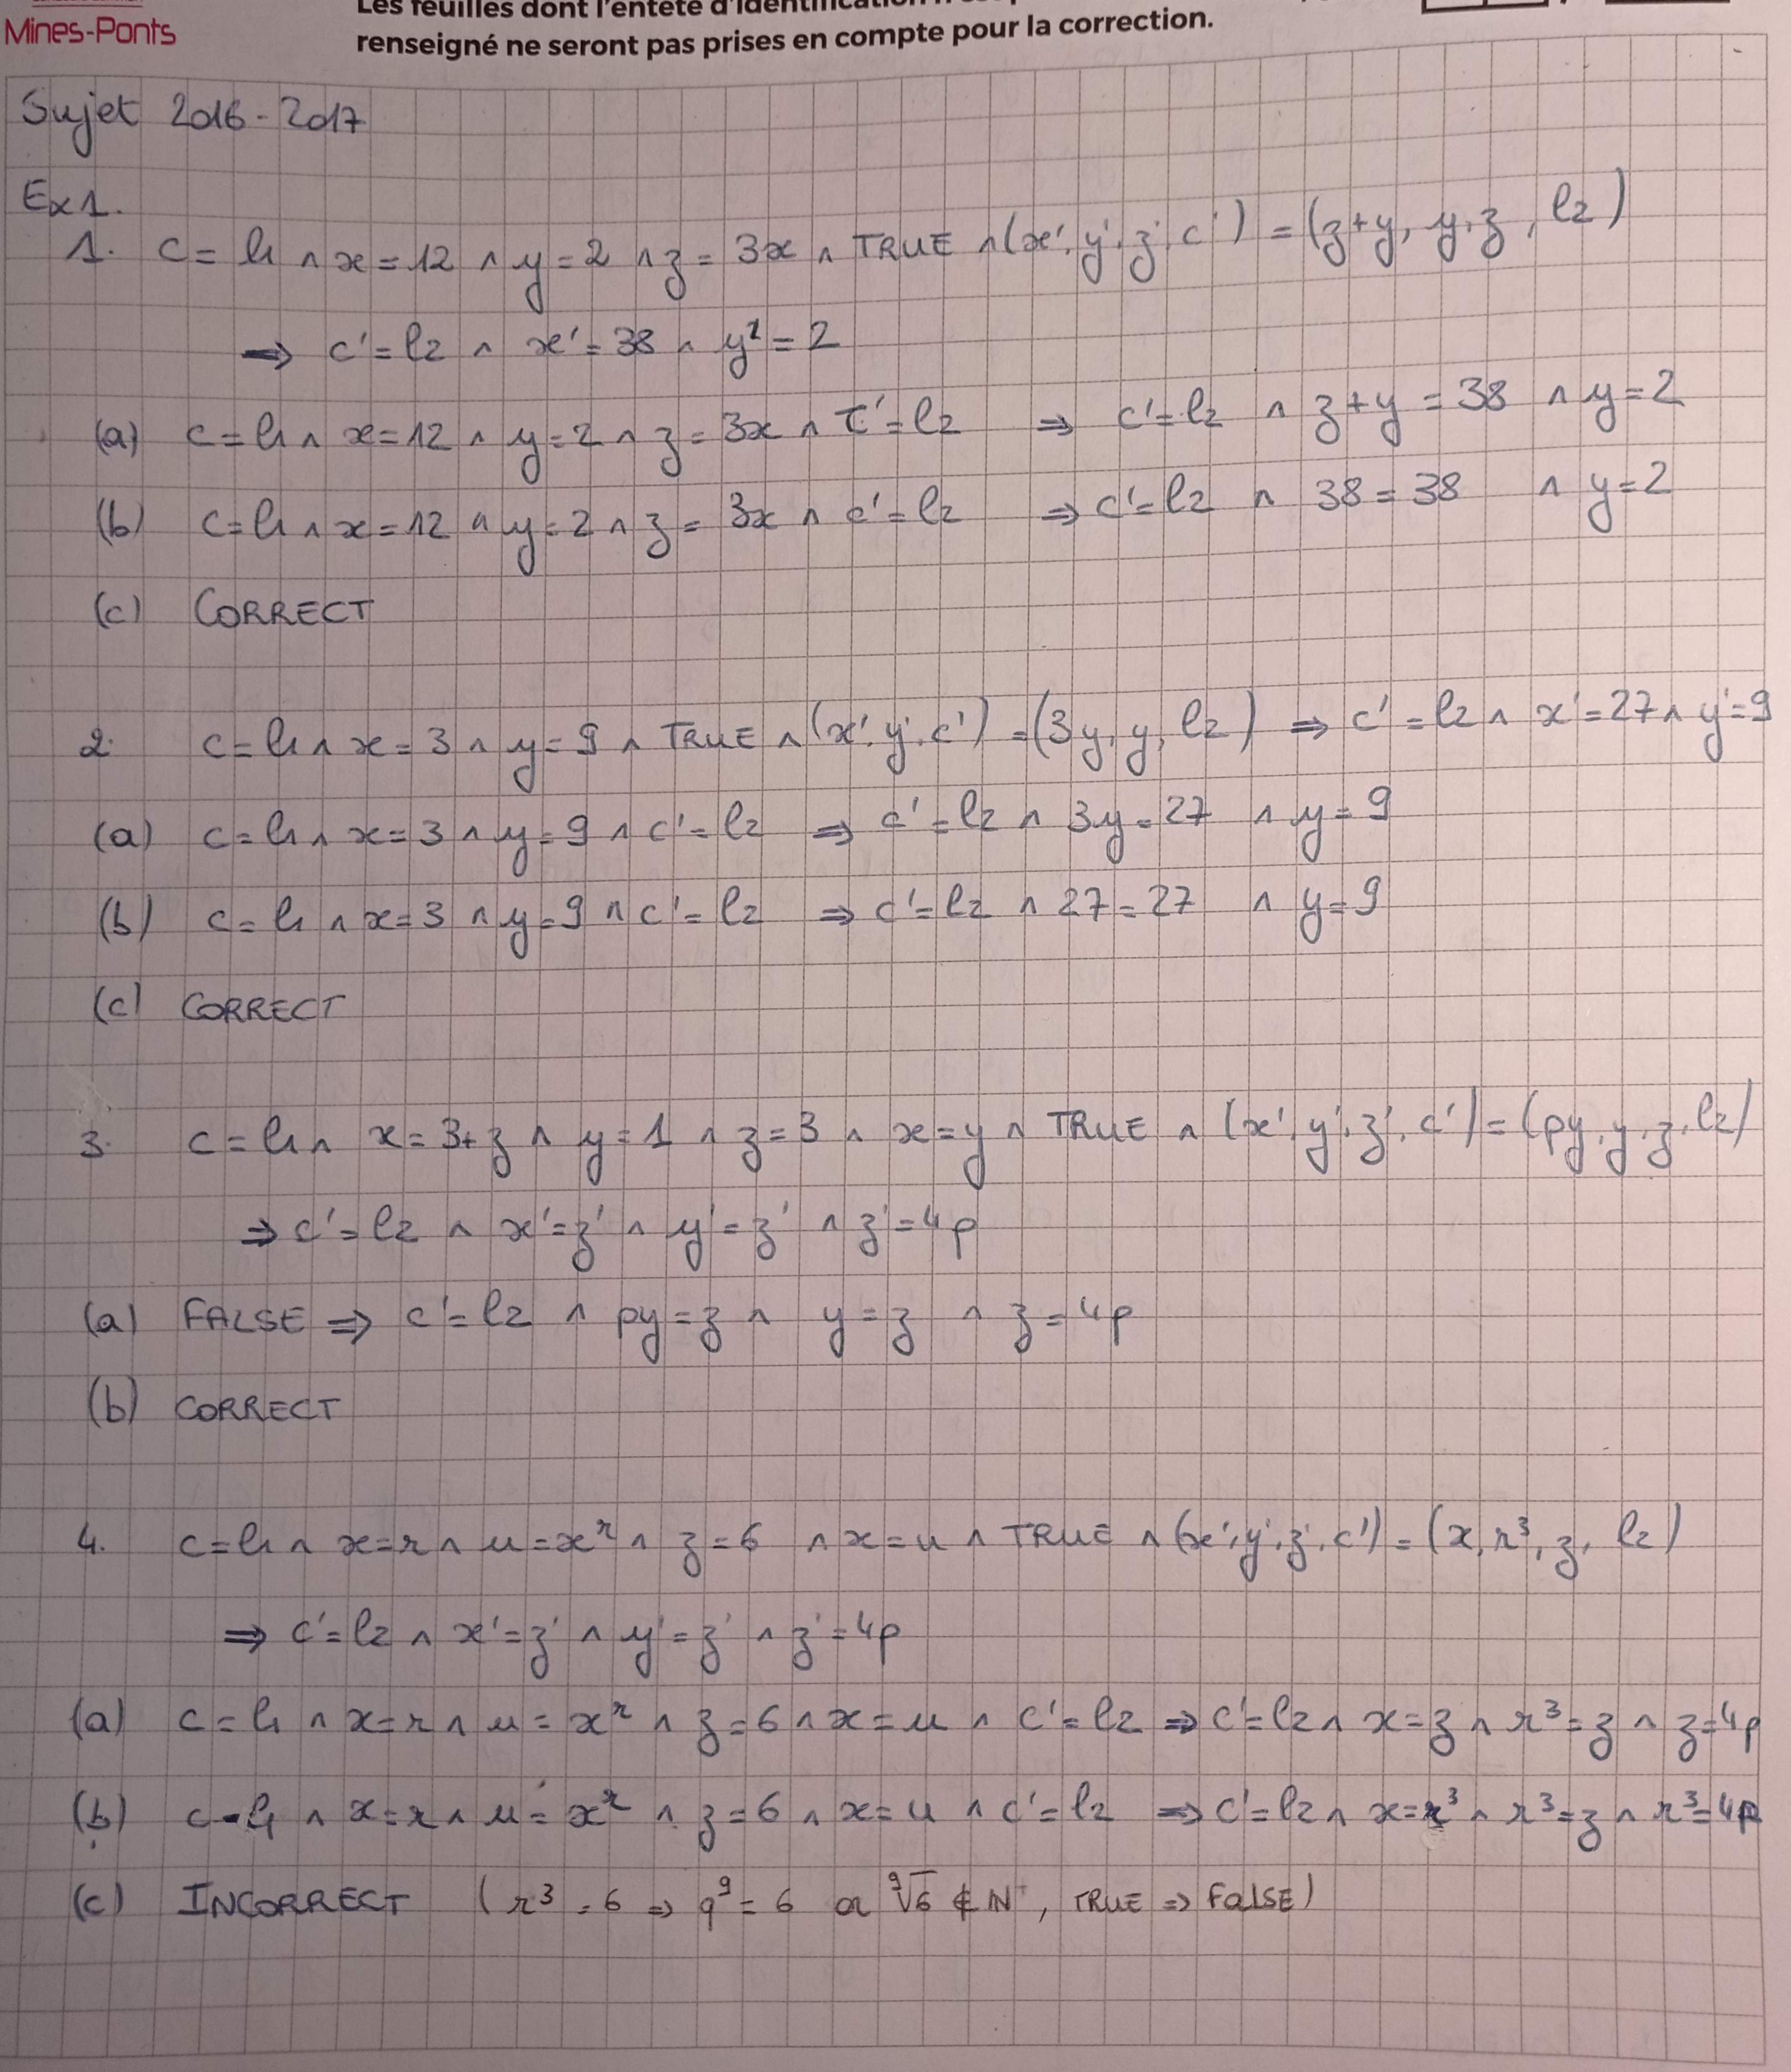 Mines-Ponts
renseigné ne seront pas prises en compte pour la correction.
Sujet 2016-2017
Ex1.
1. c = l1 ∧ x = 12 ∧ y = 2 ∧ z = 3x ∧ TRUE ∧ (x', y', z', c') = (z+y, y, z, l2)
⇒ c' = l2 ∧ x' = 38 ∧ y' = 2
(a) c = l1 ∧ x = 12 ∧ y = 2 ∧ z = 3x ∧ c' = l2 ⇒ c' = l2 ∧ z+y = 38 ∧ y = 2
(b) c = l1 ∧ x = 12 ∧ y = 2 ∧ z = 3x ∧ c' = l2 ⇒ c' = l2 ∧ 38 = 38 ∧ y = 2
(c) CORRECT
2. c = l1 ∧ x = 3 ∧ y = 9 ∧ TRUE ∧ (x', y', c') = (3y, y, l2) ⇒ c' = l2 ∧ x' = 27 ∧ y' = 9
(a) c = l1 ∧ x = 3 ∧ y = 9 ∧ c' = l2 ⇒ c' = l2 ∧ 3y = 27 ∧ y = 9
(b) c = l1 ∧ x = 3 ∧ y = 9 ∧ c' = l2 ⇒ c' = l2 ∧ 27 = 27 ∧ y = 9
(c) CORRECT
3. c = l1 ∧ x = 3+z ∧ y = 1 ∧ z = 3 ∧ x = y ∧ TRUE ∧ (x', y', z', c') = (py, y, z, l2)
⇒ c' = l2 ∧ x' = z' ∧ y' = z' ∧ z' = 4p
(a) FALSE ⇒ c' = l2 ∧ py = z ∧ y = z ∧ z = 4p
(b) CORRECT
4. c = l1 ∧ x = r ∧ u = x^r ∧ z = 6 ∧ x = u ∧ TRUE ∧ (x', y', z', c') = (x, r³, z, l2)
⇒ c' = l2 ∧ x' = z' ∧ y' = z' ∧ z' = 4p
(a) c = l1 ∧ x = r ∧ u = x^r ∧ z = 6 ∧ x = u ∧ c' = l2 ⇒ c' = l2 ∧ x = z ∧ r³ = z ∧ z = 4p
(b) c = l1 ∧ x = r ∧ u = x^r ∧ z = 6 ∧ x = u ∧ c' = l2 ⇒ c' = l2 ∧ x = r³ ∧ r³ = z ∧ r³ = 4p
(c) INCORRECT (r³ = 6 ⇒ q⁹ = 6 or ⁹√6 ∉ ℕ, TRUE ⇒ FALSE)